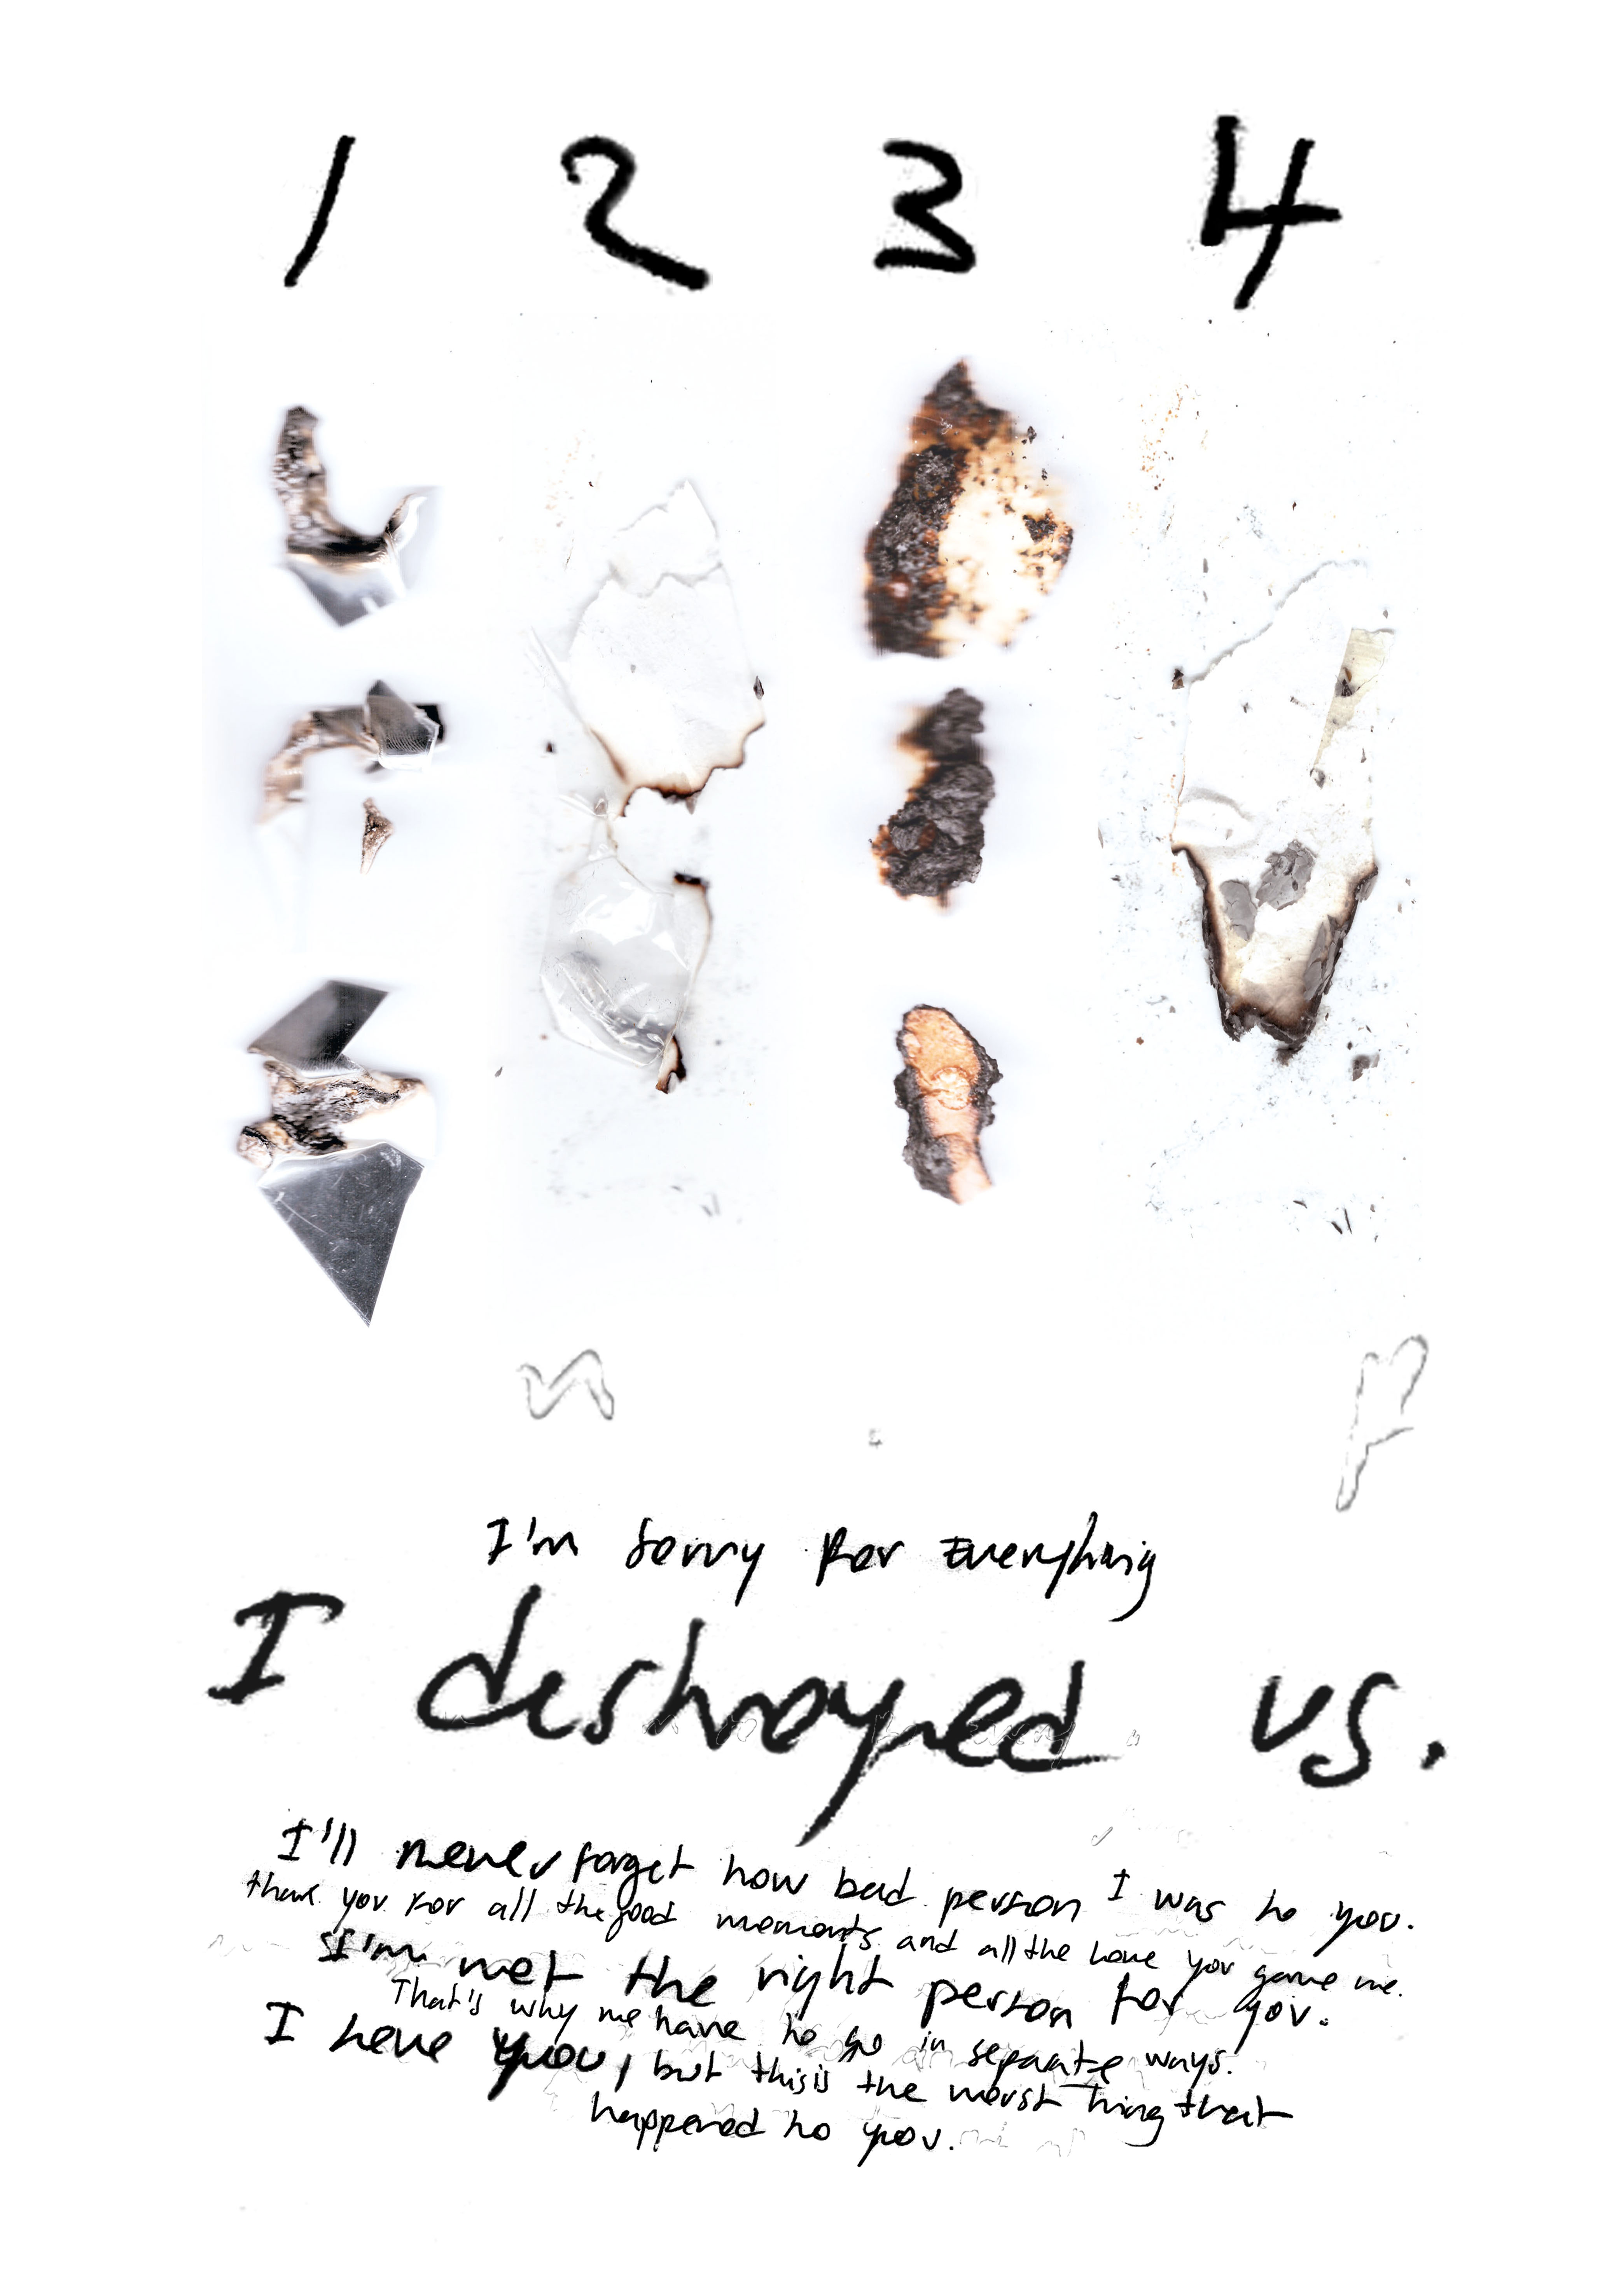 1 2 3 4
I'm sorry for Everything
I destroyed us.
I'll never forget how bad person I was to you.
thank you for all the good moments and all the love you gave me.
I'm not the right person for you.
That's why we have to go in separate ways.
I love you, but this is the worst thing that
happened to you.